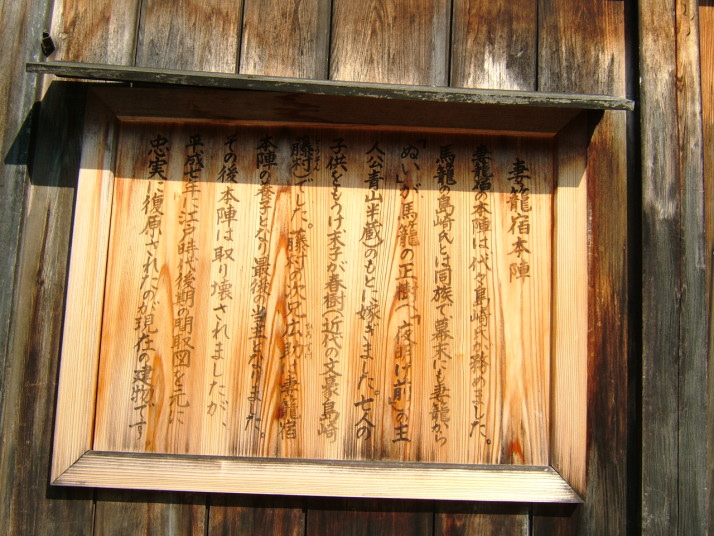 妻籠宿本陣
妻籠宿の本陣は代々島崎氏が務めました。
馬籠の島崎氏とは同族で、幕末にも妻籠から
「ぬい」が馬籠の正樹(「夜明け前」の主
人公青山半蔵)のもとに嫁ぎました。七人の
子供をもうけ末子が春樹(近代の文豪島崎
藤村)でした。藤村の次兄広助は妻籠宿
本陣の養子となり最後の当主となりました。
その後本陣は取り壊されましたが、
平成七年に江戸時代後期の間取図を元に
忠実に復原されたのが現在の建物です